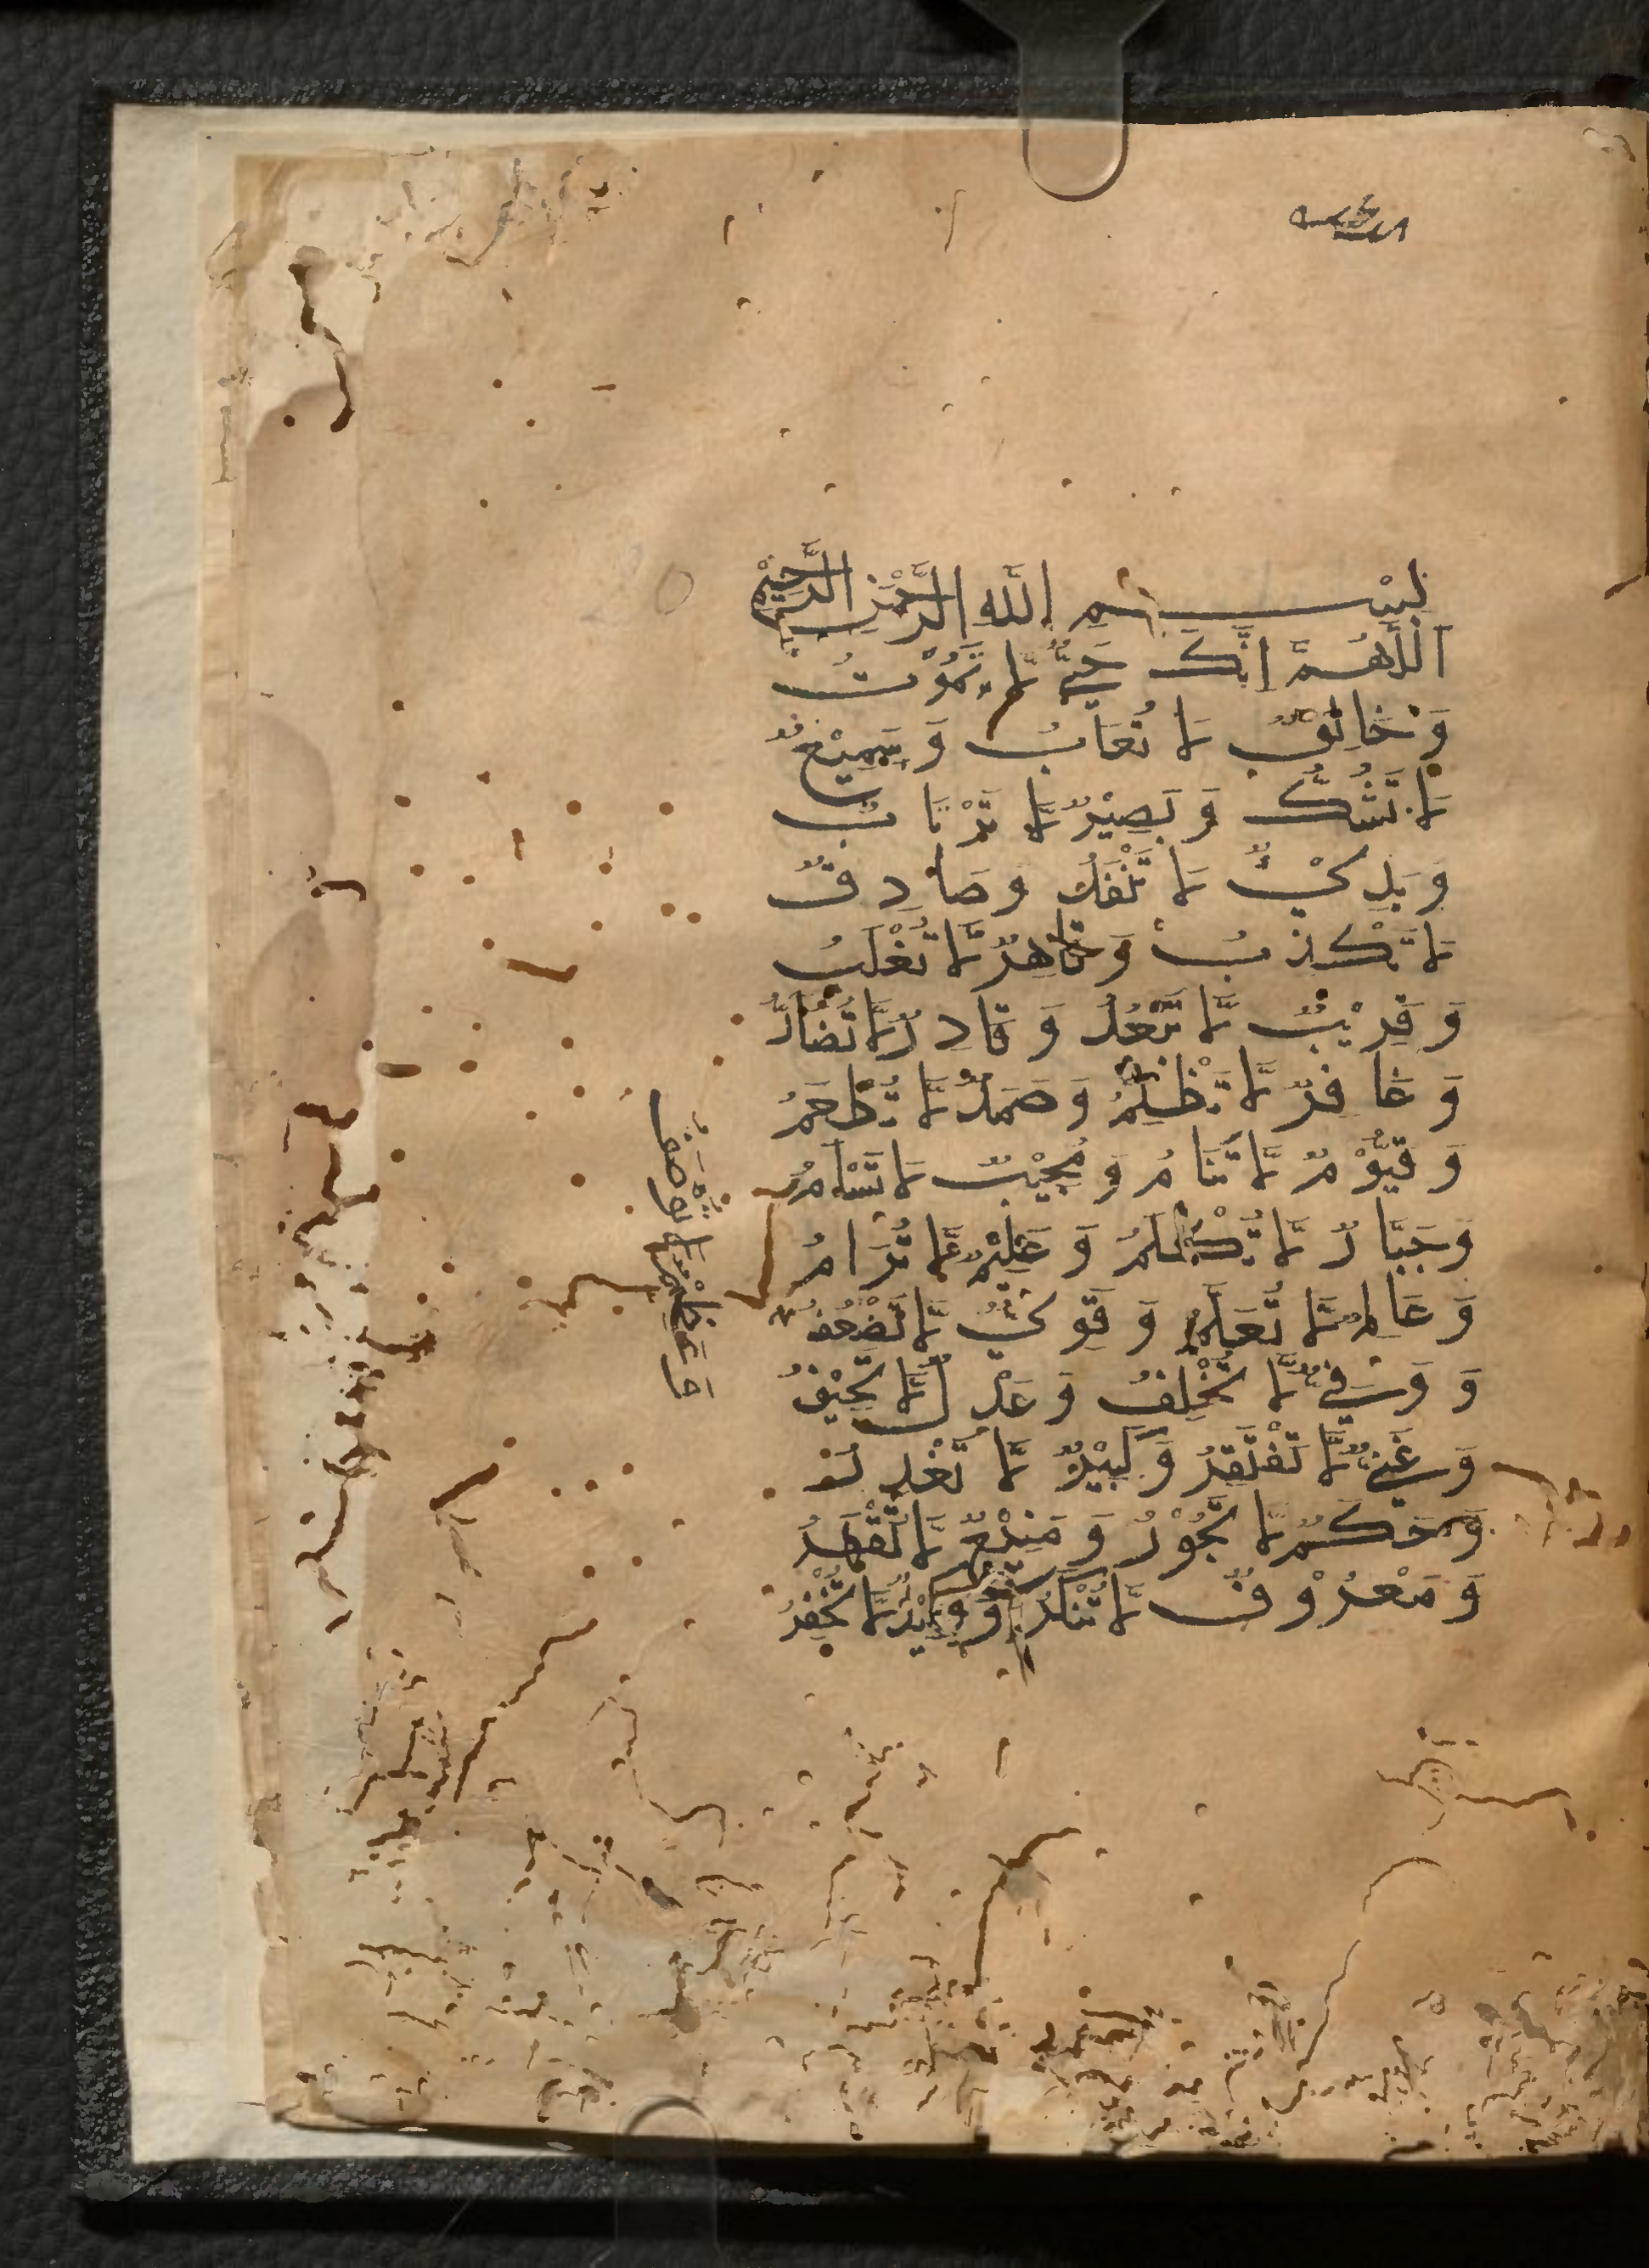 بِسْمِ اللّٰهِ الرَّحْمٰنِ الرَّحِيْمِ
اَللّٰهُمَّ اِنَّكَ حَيٌّ لَّا تَمُوْتُ
وَ خَالِقٌ لَا تُغَابُ وَ سَمِيْعٌ
لَا تَشُكُّ وَ بَصِيْرٌ لَّا تَرْتَابُ
وَ لَا تَنْفَدُ وَ صَادِقٌ
لَا تَكْذِبُ وَ قَاهِرٌ لَّا تُغْلَبُ
وَ قَرِيْبٌ لَّا تَبْعُدُ وَ قَادِرٌ لَّا تُضَادُّ
وَ غَافِرٌ لَّا تَظْلِمُ وَ صَمَدٌ لَّا تُطْعَمُ
وَ قَيُّوْمٌ لَّا تَنَامُ وَ مُجِيْبٌ لَا تَسْاَمُ
وَ جَبَّارٌ لَّا تُكَلَّمُ وَ عَظِيْمٌ لَّا تُرَامُ
وَ عَالِمٌ لَّا تُعَلَّمُ وَ قَوِيٌّ لَّا تَضْعُفُ
وَ وَفِيٌّ لَّا تُخْلِفُ وَ عَدْلٌ لَّا تَحِيْفُ
وَ غَنِيٌّ لَّا تَفْتَقِرُ وَ كَبِيْرٌ لَّا
وَ حَكَمٌ لَّا تَجُوْرُ وَ مَنِيْعٌ لَّا تُقْهَرُ
وَ مَعْرُوْفٌ لَّا تُنْكَرُ وَ وَكِيْلٌ لَّا تُخْفَرُ